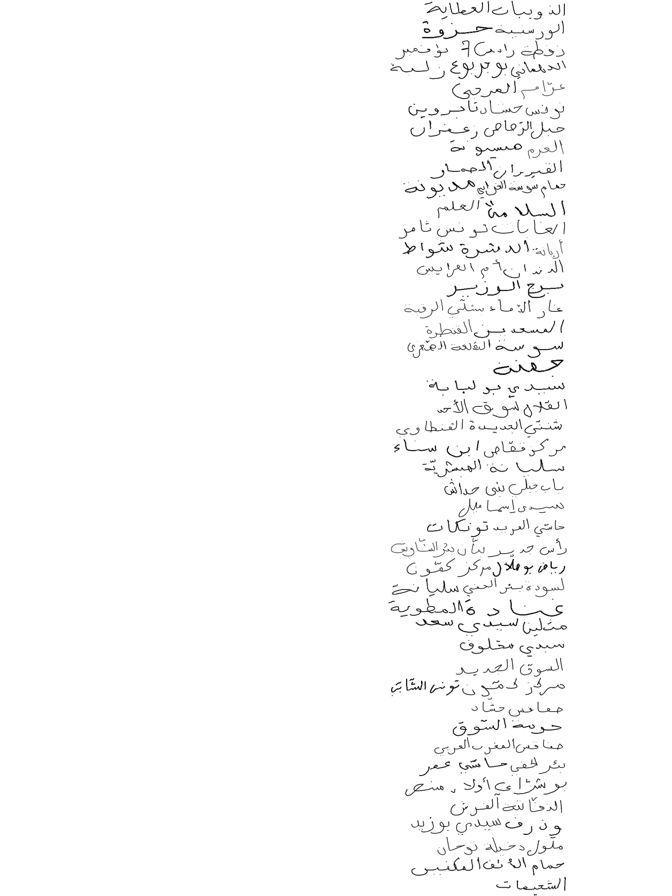 الذويبات العطاية
الورسنية حزوة
زنوش 7 نوفمبر
الدهماني بوجربوع زلبة
عزام العرجي
تونس حشاد تاجروين
جبل الرصاص زعفران
العرم ميسونة
القيروان الحصار
حمام سوسة الغرابي مديونة
السلامة العلم
الغابات تونس ثامر
أريانة الدشرة شواط
الدندان أم العرايس
برج الوزير
غار الدماء سنتي الرقبة
المسعدين القنطرة
سوسة القلعة الصغرى
حفنة
سيدي بولبابة
القلال سوق الأحد
شنني الجديدة القنطاوي
مركز فقاص ابن سناء
سليانة المبشرية
باب جبلي بني حداش
سيدي إسماعيل
حاسي الفريد تونكات
رأس جدير بئر الشاوش
رياض بوهلال مركز كمون
لسودة بئر الحفي سليانة
غنادة المطوية
مثلين سيدي سعد
سيدي مخلوف
السوق الجديد
مركز كمون تونس الشابي
صفاقس حشاد
حومة السوق
صفاقس المغرب العربي
بئر الحفي حاسي عمر
بوشراي أولاد منصر
الدخانية الفرش
وذرف سيدي بوزيد
ملول دخيلة توجان
حمام الأنف المكنين
الشعيمات